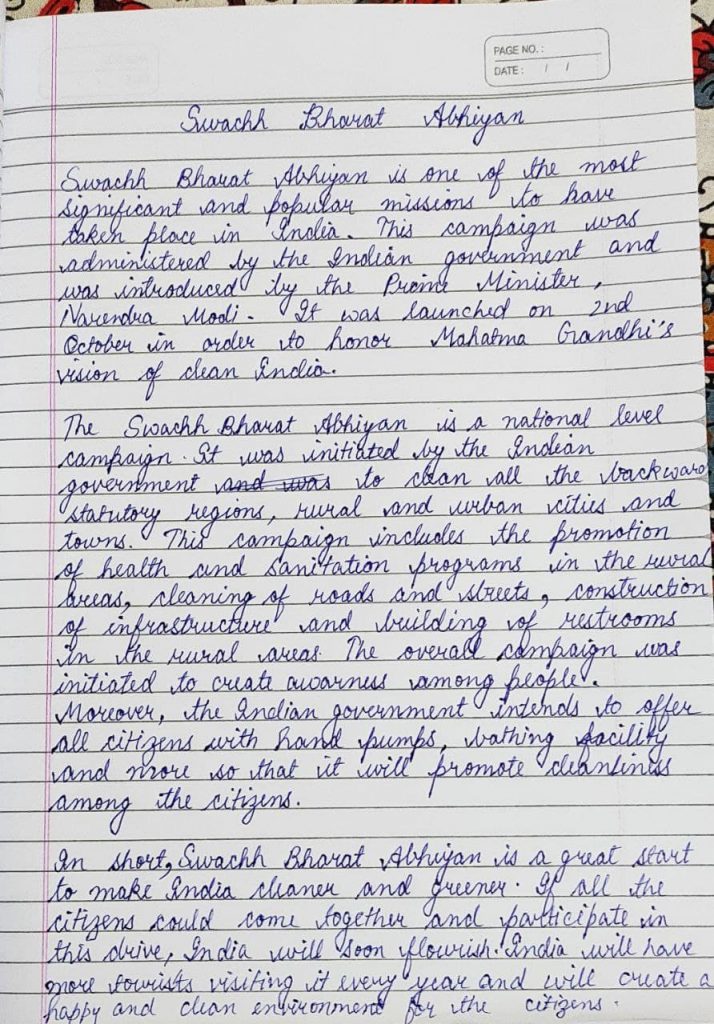 PAGE NO.:
DATE: / /
Swachh Bharat Abhiyan
Swachh Bharat Abhiyan is one of the most
significant and popular missions to have
taken place in India. This campaign was
administered by the Indian government and
was introduced by the Prime Minister,
Narendra Modi. It was launched on 2nd
October in order to honor Mahatma Gandhi's
vision of clean India.
The Swachh Bharat Abhiyan is a national level
campaign. It was initiated by the Indian
government and was to clean all the backward
statutory regions, rural and urban cities and
towns. This campaign includes the promotion
of health and sanitation programs in the rural
areas, cleaning of roads and streets, construction
of infrastructure and building of restrooms
in the rural areas. The overall campaign was
initiated to create awarness among people.
Moreover, the Indian government intends to offer
all citizens with hand pumps, bathing facility
and more so that it will promote cleanliness
among the citizens.
In short, Swachh Bharat Abhiyan is a great start
to make India cleaner and greener. If all the
citizens could come together and participate in
this drive, India will soon flourish. India will have
more tourists visiting it every year and will create a
happy and clean environment for the citizens.